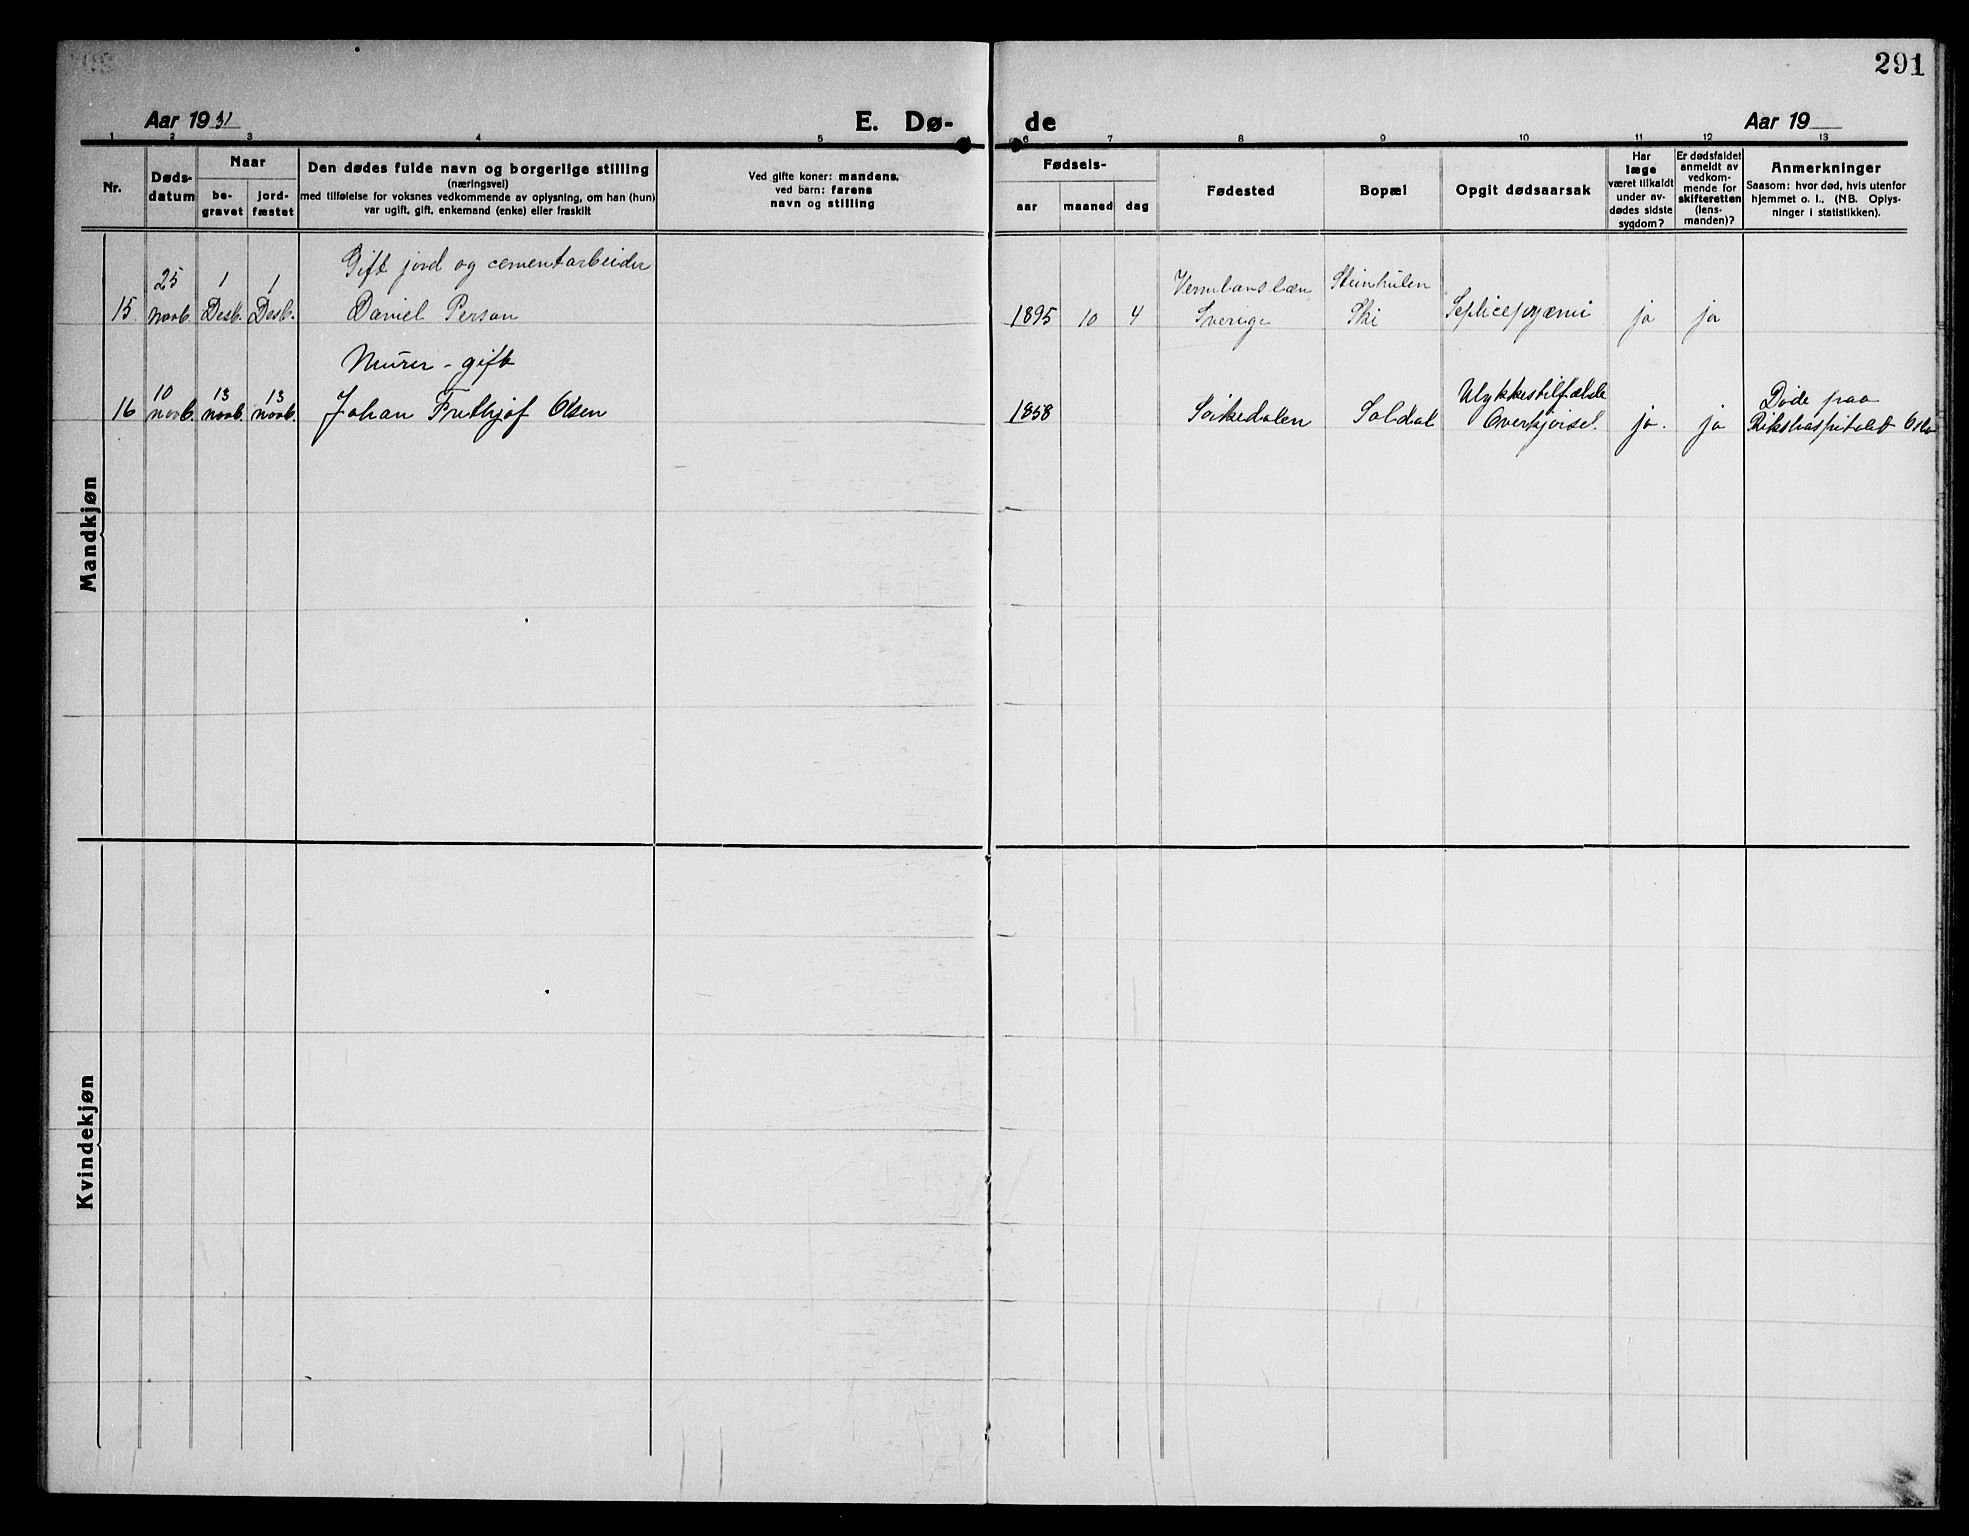 291
Aar 1931
E. Dø-
de
Aar 19
1 2 3 4 5 6 7 8 9 10 11 12 13
Nr.
Døds-
datum
Naar
be-
gravet
jord-
fæstet
Den dødes fulde navn og borgerlige stilling
(næringsvei)
med tilføielse for voksnes vedkommende av oplysning, om han (hun)
var ugift, gift, enkemand (enke) eller fraskilt
Ved gifte koner: mandens,
ved barn: farens
navn og stilling
Fødsels-
aar
maaned
dag
Fødested
Bopæl
Opgit dødsaarsak
Har
læge
været tilkaldt
under av-
dødes sidste
sygdom?
Er dødsfaldet
anmeldt av
vedkom-
mende for
skifteretten
(lens-
manden)?
Anmerkninger
Saasom: hvor død, hvis utenfor
hjemmet o. l., (NB. Oplys-
ninger i statistikken).
Mandkjøn
Gift jord og cementarbeider
25 1 1
Vermlands læn Steinhulen
15 novb. Desb. Desb. Daniel Person
1895 10 4 Sverige Ski ja ja
Murer - gift
10 13 13
Ulykkestilfælde
Døde paa
16 novb. novb. novb. Johan Frithjof Olsen
1858 Sørkedalen Soldal Overkjørsel. ja. ja Rikshospitalet Oslo
Kvindekjøn